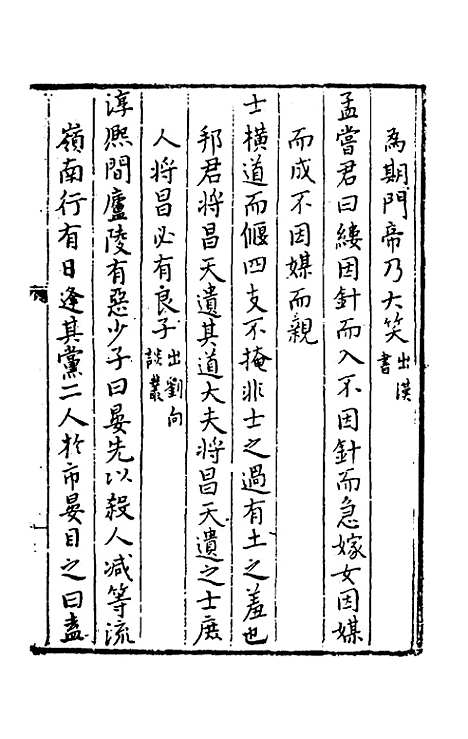 為期門帝乃大笑出漢書
孟嘗君曰縷因針而入不因針而急嫁女因媒
而成不因媒而親
士橫道而偃四支不掩非士之過有土之羞也
邦君將昌天遺其道大夫將昌天遺之士庶
人將昌必有良子出劉向談叢
淳熙間廬陵有惡少子曰晏先以殺人减等流
嶺南行有日逢其黨二人於市晏目之曰盍